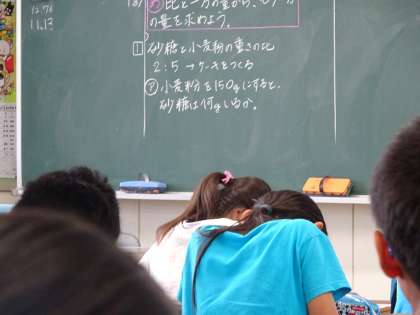 め 比と一方の量から、もう一方
の量を求めよう。
1 砂糖と小麦粉の重さの比
2:5 → ケーキをつくる
ア 小麦粉を150gにすると、
砂糖は何g いるか。